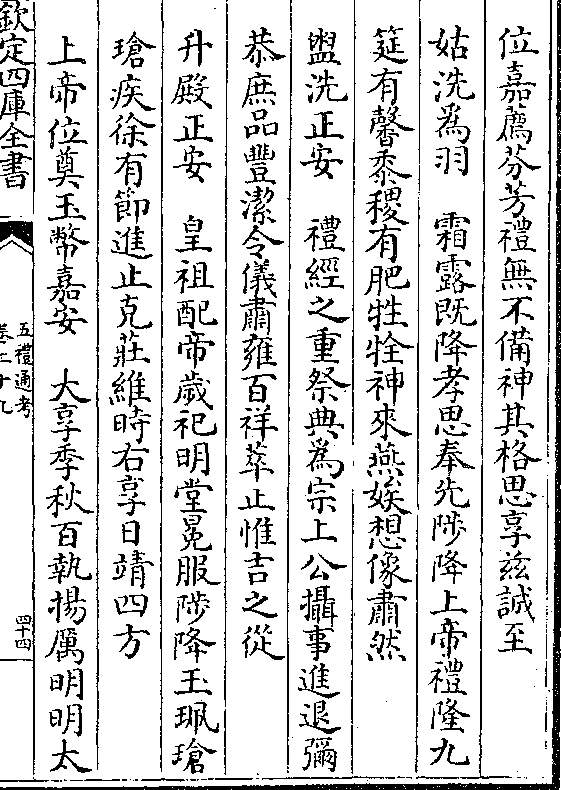 位嘉薦芬芳禮無不備神其格思享兹誠至
姑洗為羽　霜露既降孝思奉先陟降上帝禮隆九
筵有馨黍稷有肥牲牷神來燕娭想像肅然
盥洗正安　禮經之重祭典為宗上公攝事進退彌
恭庶品豐潔令儀肅雍百祥萃止惟吉之從
升殿正安　皇祖配帝歲祀明堂冕服陟降玉珮瑲
瑲疾徐有節進止克莊維時右享日靖四方
上帝位奠玉幣嘉安　大享季秋百執揚厲明明太
欽定四庫全書
五禮通考
卷二十九
四十四